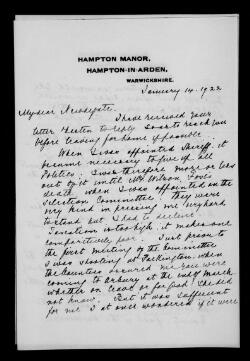 HAMPTON MANOR,
HAMPTON-IN-ARDEN,
WARWICKSHIRE.
January 14. 1922
My dear Newdegate.
I have received your
letter & hasten to reply so as to reach you
before leaving for home if possible
When I was appointed Sheriff, it
became necessary to give up all
Politics. I was therefore more or less
out of it until Mr Wilson Fox's
death when I was appointed on the
Selection Committee. They were
very kind in pressing me very hard
to stand but I had to decline.
Taxation is so high, it makes one
comparatively poor. Just prior to
the first meeting of the Committee
I was shooting at Packington, when
the Countess assured me you were
coming to Arbury at the end of March
whether on leave or for good She did
not know. That it was sufficient
for me & I at once wondered if it were